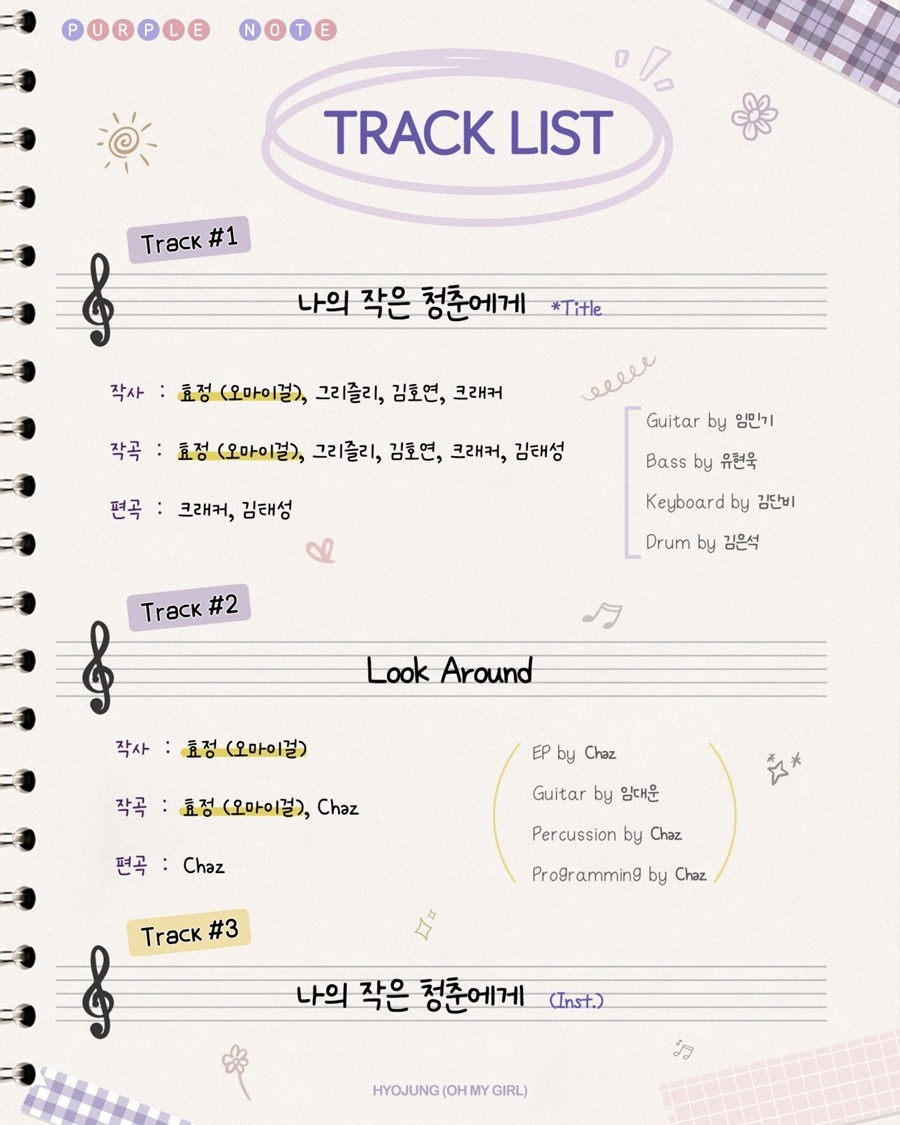 PURPLE NOTE
TRACK LIST
Track #1
나의 작은 청춘에게 *Title
작사 : 효정 (오마이걸), 그리즐리, 김호연, 크래커
작곡 : 효정 (오마이걸), 그리즐리, 김호연, 크래커, 김태성
편곡 : 크래커, 김태성
Guitar by 임민기
Bass by 유현욱
Keyboard by 김단비
Drum by 김은석
Track #2
Look Around
작사 : 효정 (오마이걸)
작곡 : 효정 (오마이걸), Chaz
편곡 : Chaz
EP by Chaz
Guitar by 임대운
Percussion by Chaz
Programming by Chaz
Track #3
나의 작은 청춘에게 (Inst.)
HYOJUNG (OH MY GIRL)